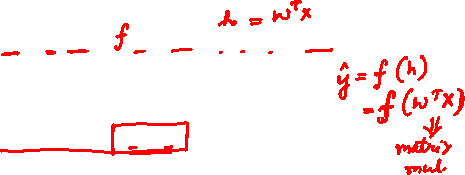 h = wᵀx
f
ŷ = f(h)
= f(wᵀx)
matrix
mul